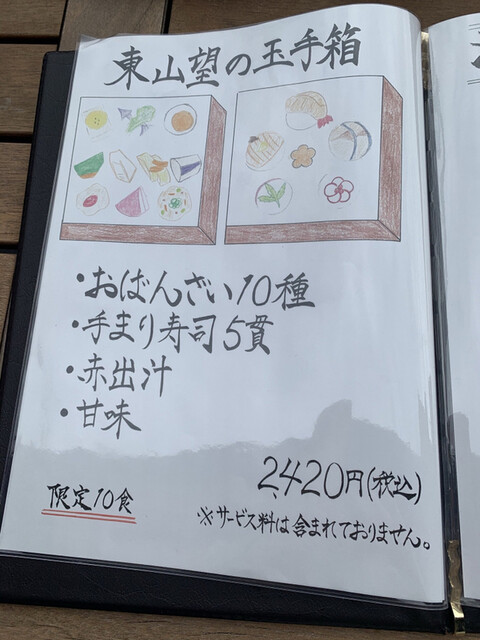 東山望の玉手箱
・おばんざい10種
・手まり寿司5貫
・赤出汁
・甘味
2,420円(税込)
限定10食
※サービス料は含まれておりません。